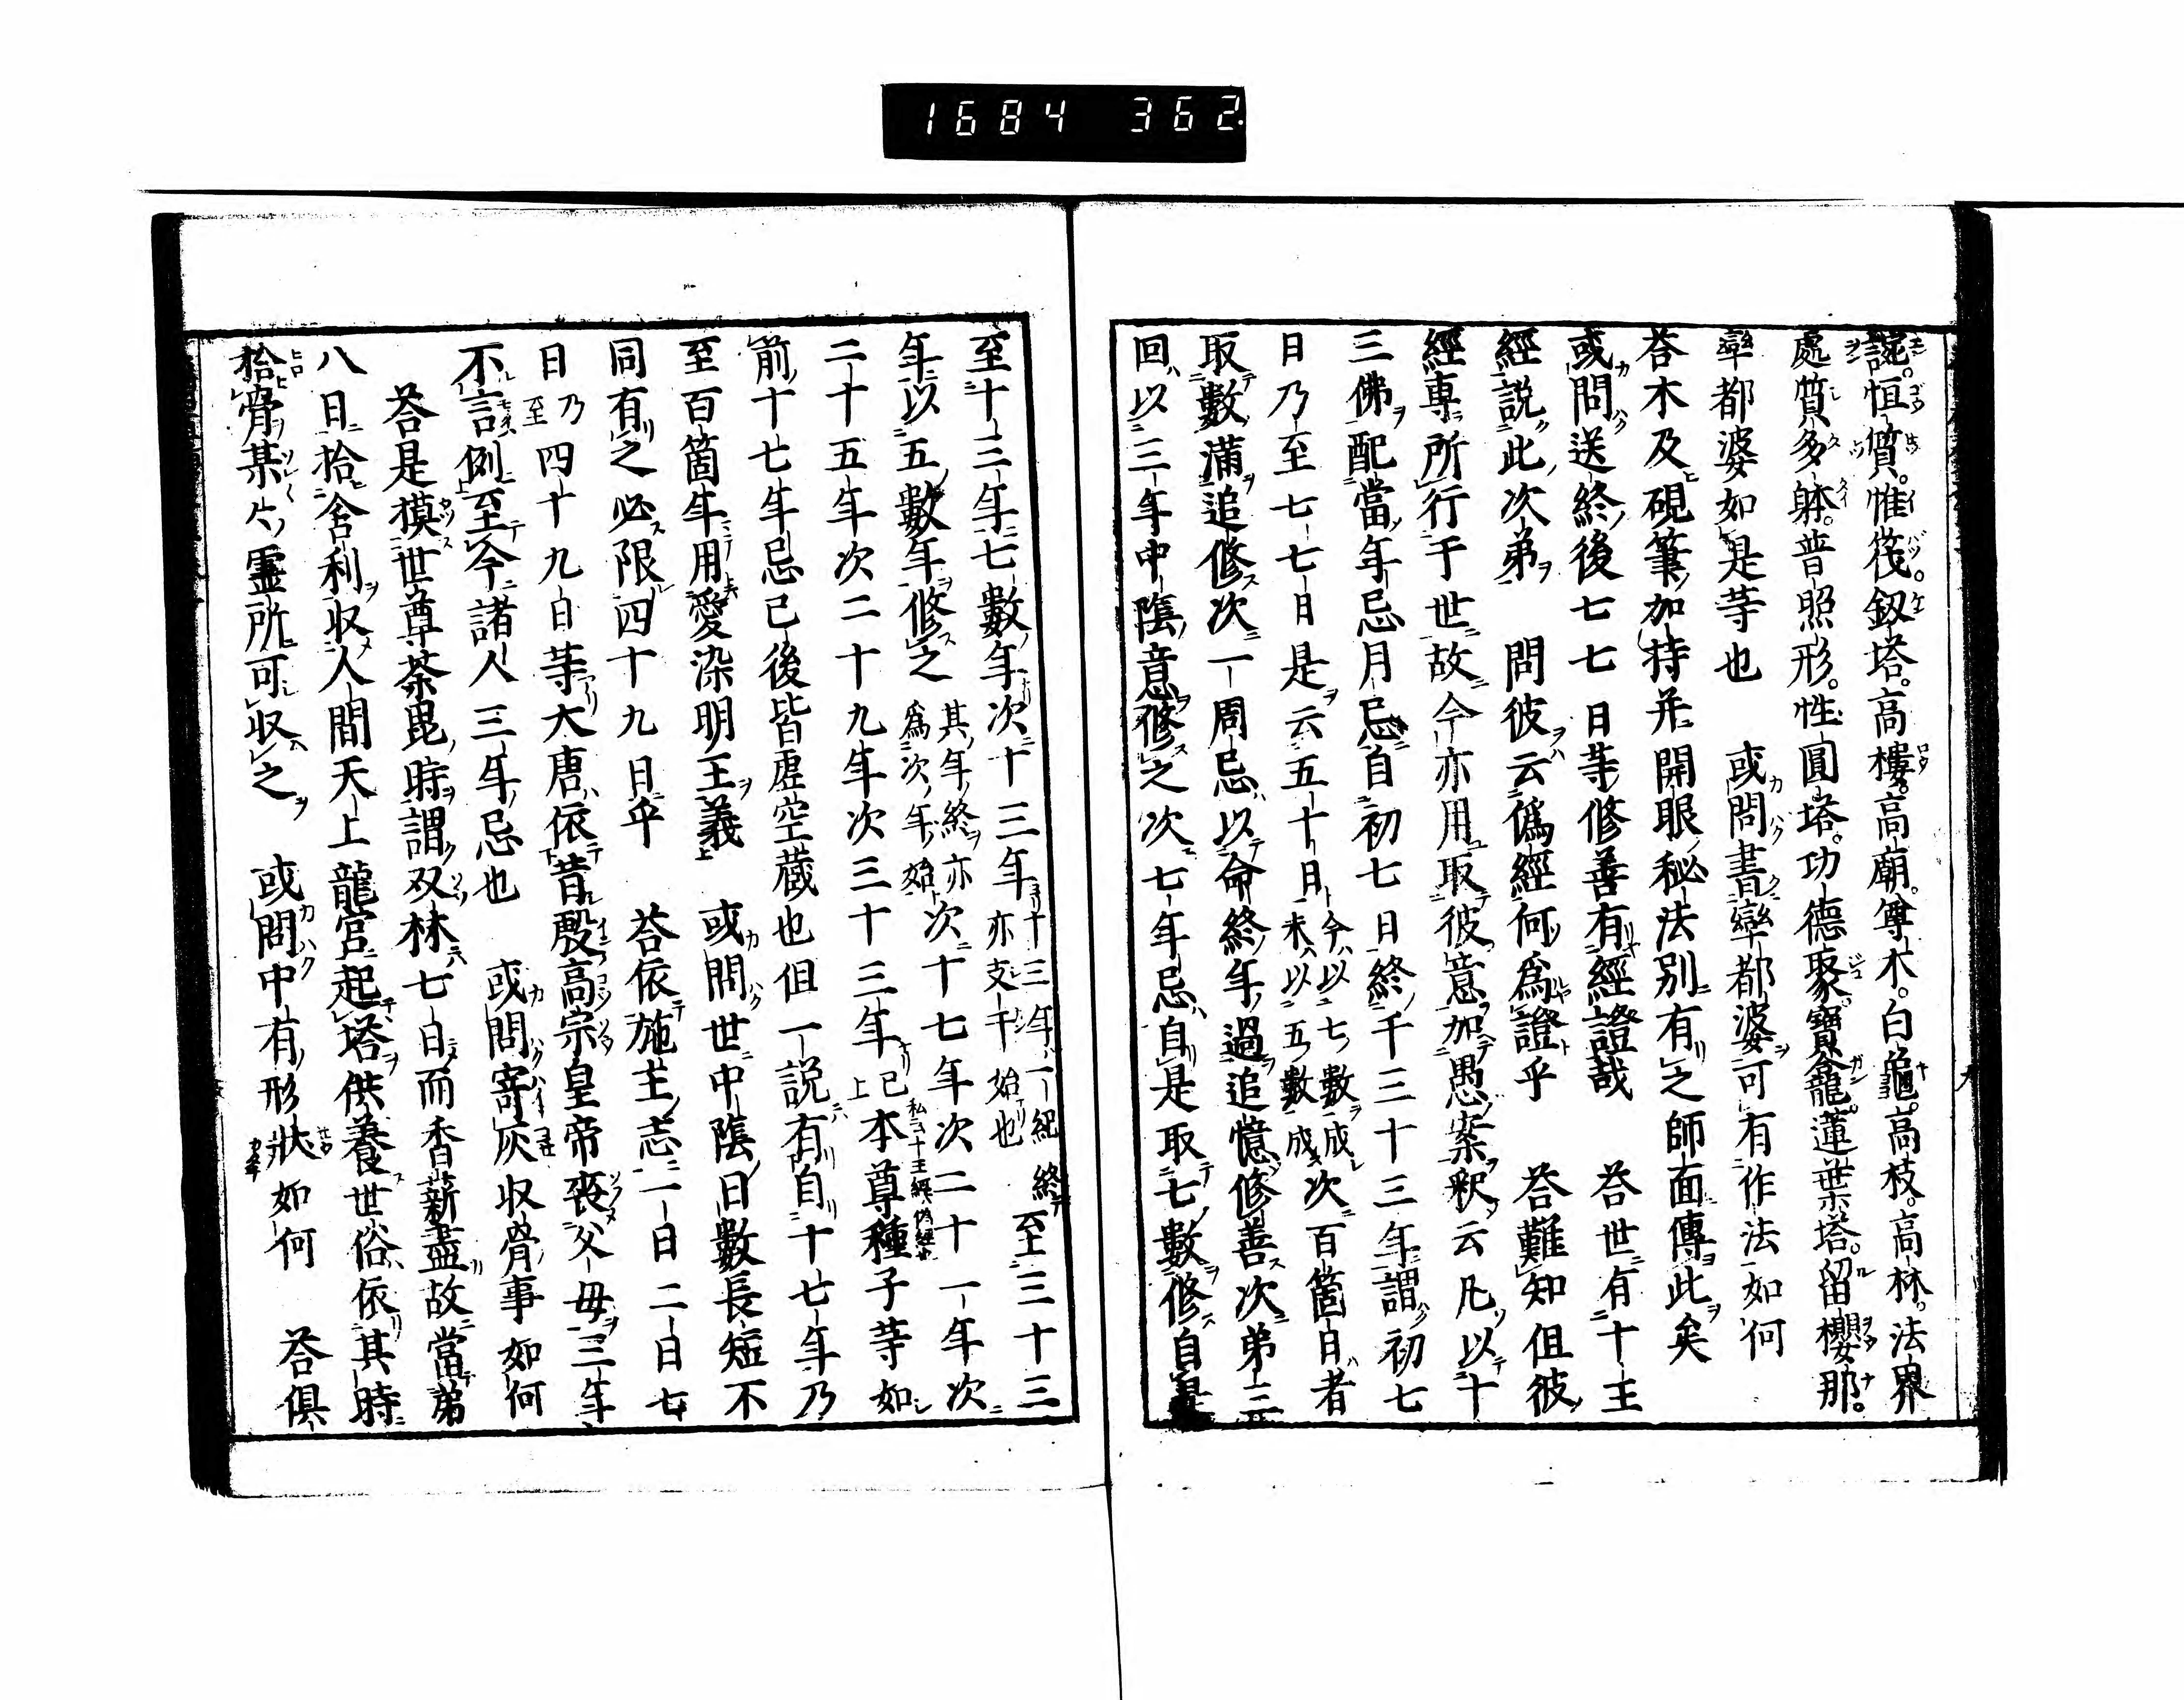 1684 362.
謎。恒質。惟筏。釼塔。高樓。高廟。尊木。白龜。高枝。高林。法界
處質多躰。普照形。性圓塔。功德聚。寶龕。蓮葉塔。留櫻那。
率都婆如是等也 或問書率都婆可有作法如何
荅木及硯筆加持并開眼秘法別有之師面傳此矣
或問送終後七七日等修善有經證哉 荅世有十王
經說此次弟 問彼云僞經何爲證乎 荅難知但彼
經專所行于世故今亦用取彼意加愚案釈云凡以十
三佛配當年忌月忌自初七日終于三十三年謂初七
日乃至七七日是云五十日今以七數成未以五數成次百箇日者
取數滿追修次一周忌以命終年過追憶修善次弟三
回以三年中隂意修之次七年忌自是取七數修自是
至十三年七數年次十三年十三年一紀終亦支干始也至三十三
年以五數年修之其年終亦爲次年始次十七年次二十一年次
二十五年次二十九年次三十三年已上本尊種子等如私云十王經僞經也
前十七年忌已後皆虛空藏也但一說有自十七年乃
至百箇年用愛染明王義 或問世中隂日數長短不
同有之必限四十九日乎 荅依施主志一日二日七
日乃至四十九日等大唐依昔殷高宗皇帝喪父母三年
不言例至今諸人三年忌也 或問寄灰収骨事如何
荅是摸世尊茶毘時謂双林七日而香薪盡故當弟
八日拾舍利収人間天上龍宮起塔供養世俗依其時
拾骨某片靈所可収之 或問中有形狀如何 荅俱